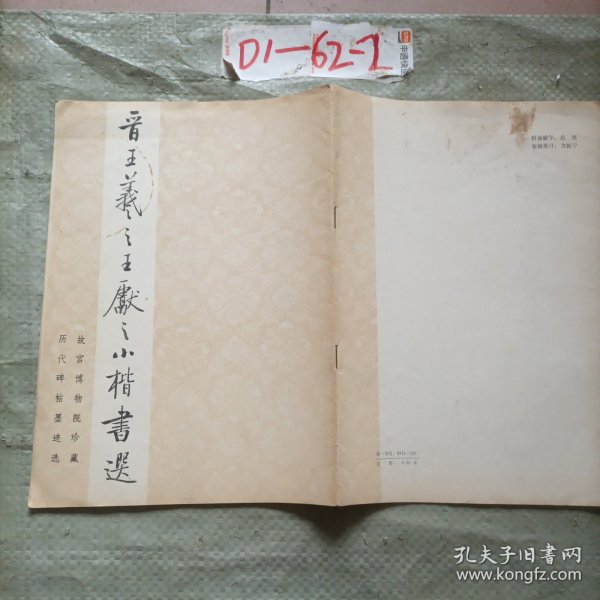 D1-62-2
晋王羲之王献之小楷書選
故宫博物院珍藏
历代碑帖墨迹选
封面题字：
装帧设计：
统一书号：8114·
定价：
孔夫子旧书网
www.kongfz.com